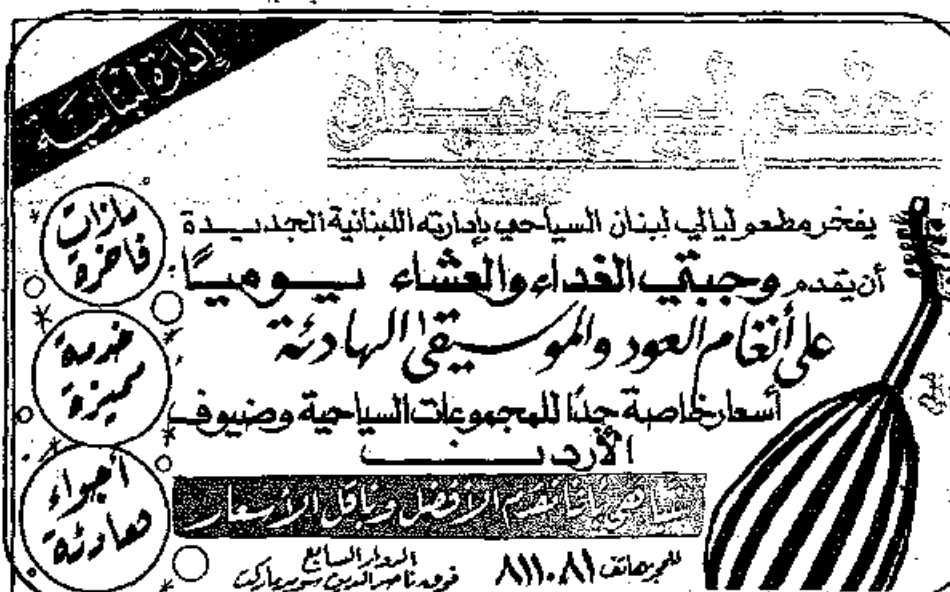 إدارة لبنانية
مطعم ليالي لبنان
يفخر مطعم ليالي لبنان السياحي بإدارته اللبنانية الجديدة
أن يقدم وجبتي الغداء والعشاء يوميًا
على أنغام العود والموسيقى الهادئة
أسعار خاصة جدًا للمجموعات السياحية وضيوف
الأردن
بأننا نقدم الأفضل وبأقل الأسعار
للحجز هاتف ٨١١٠٨١
الدوار السابع
فوق ناصر الدين سوبرماركت
مازات
فاخرة
خدمة
مميزة
أجواء
هادئة